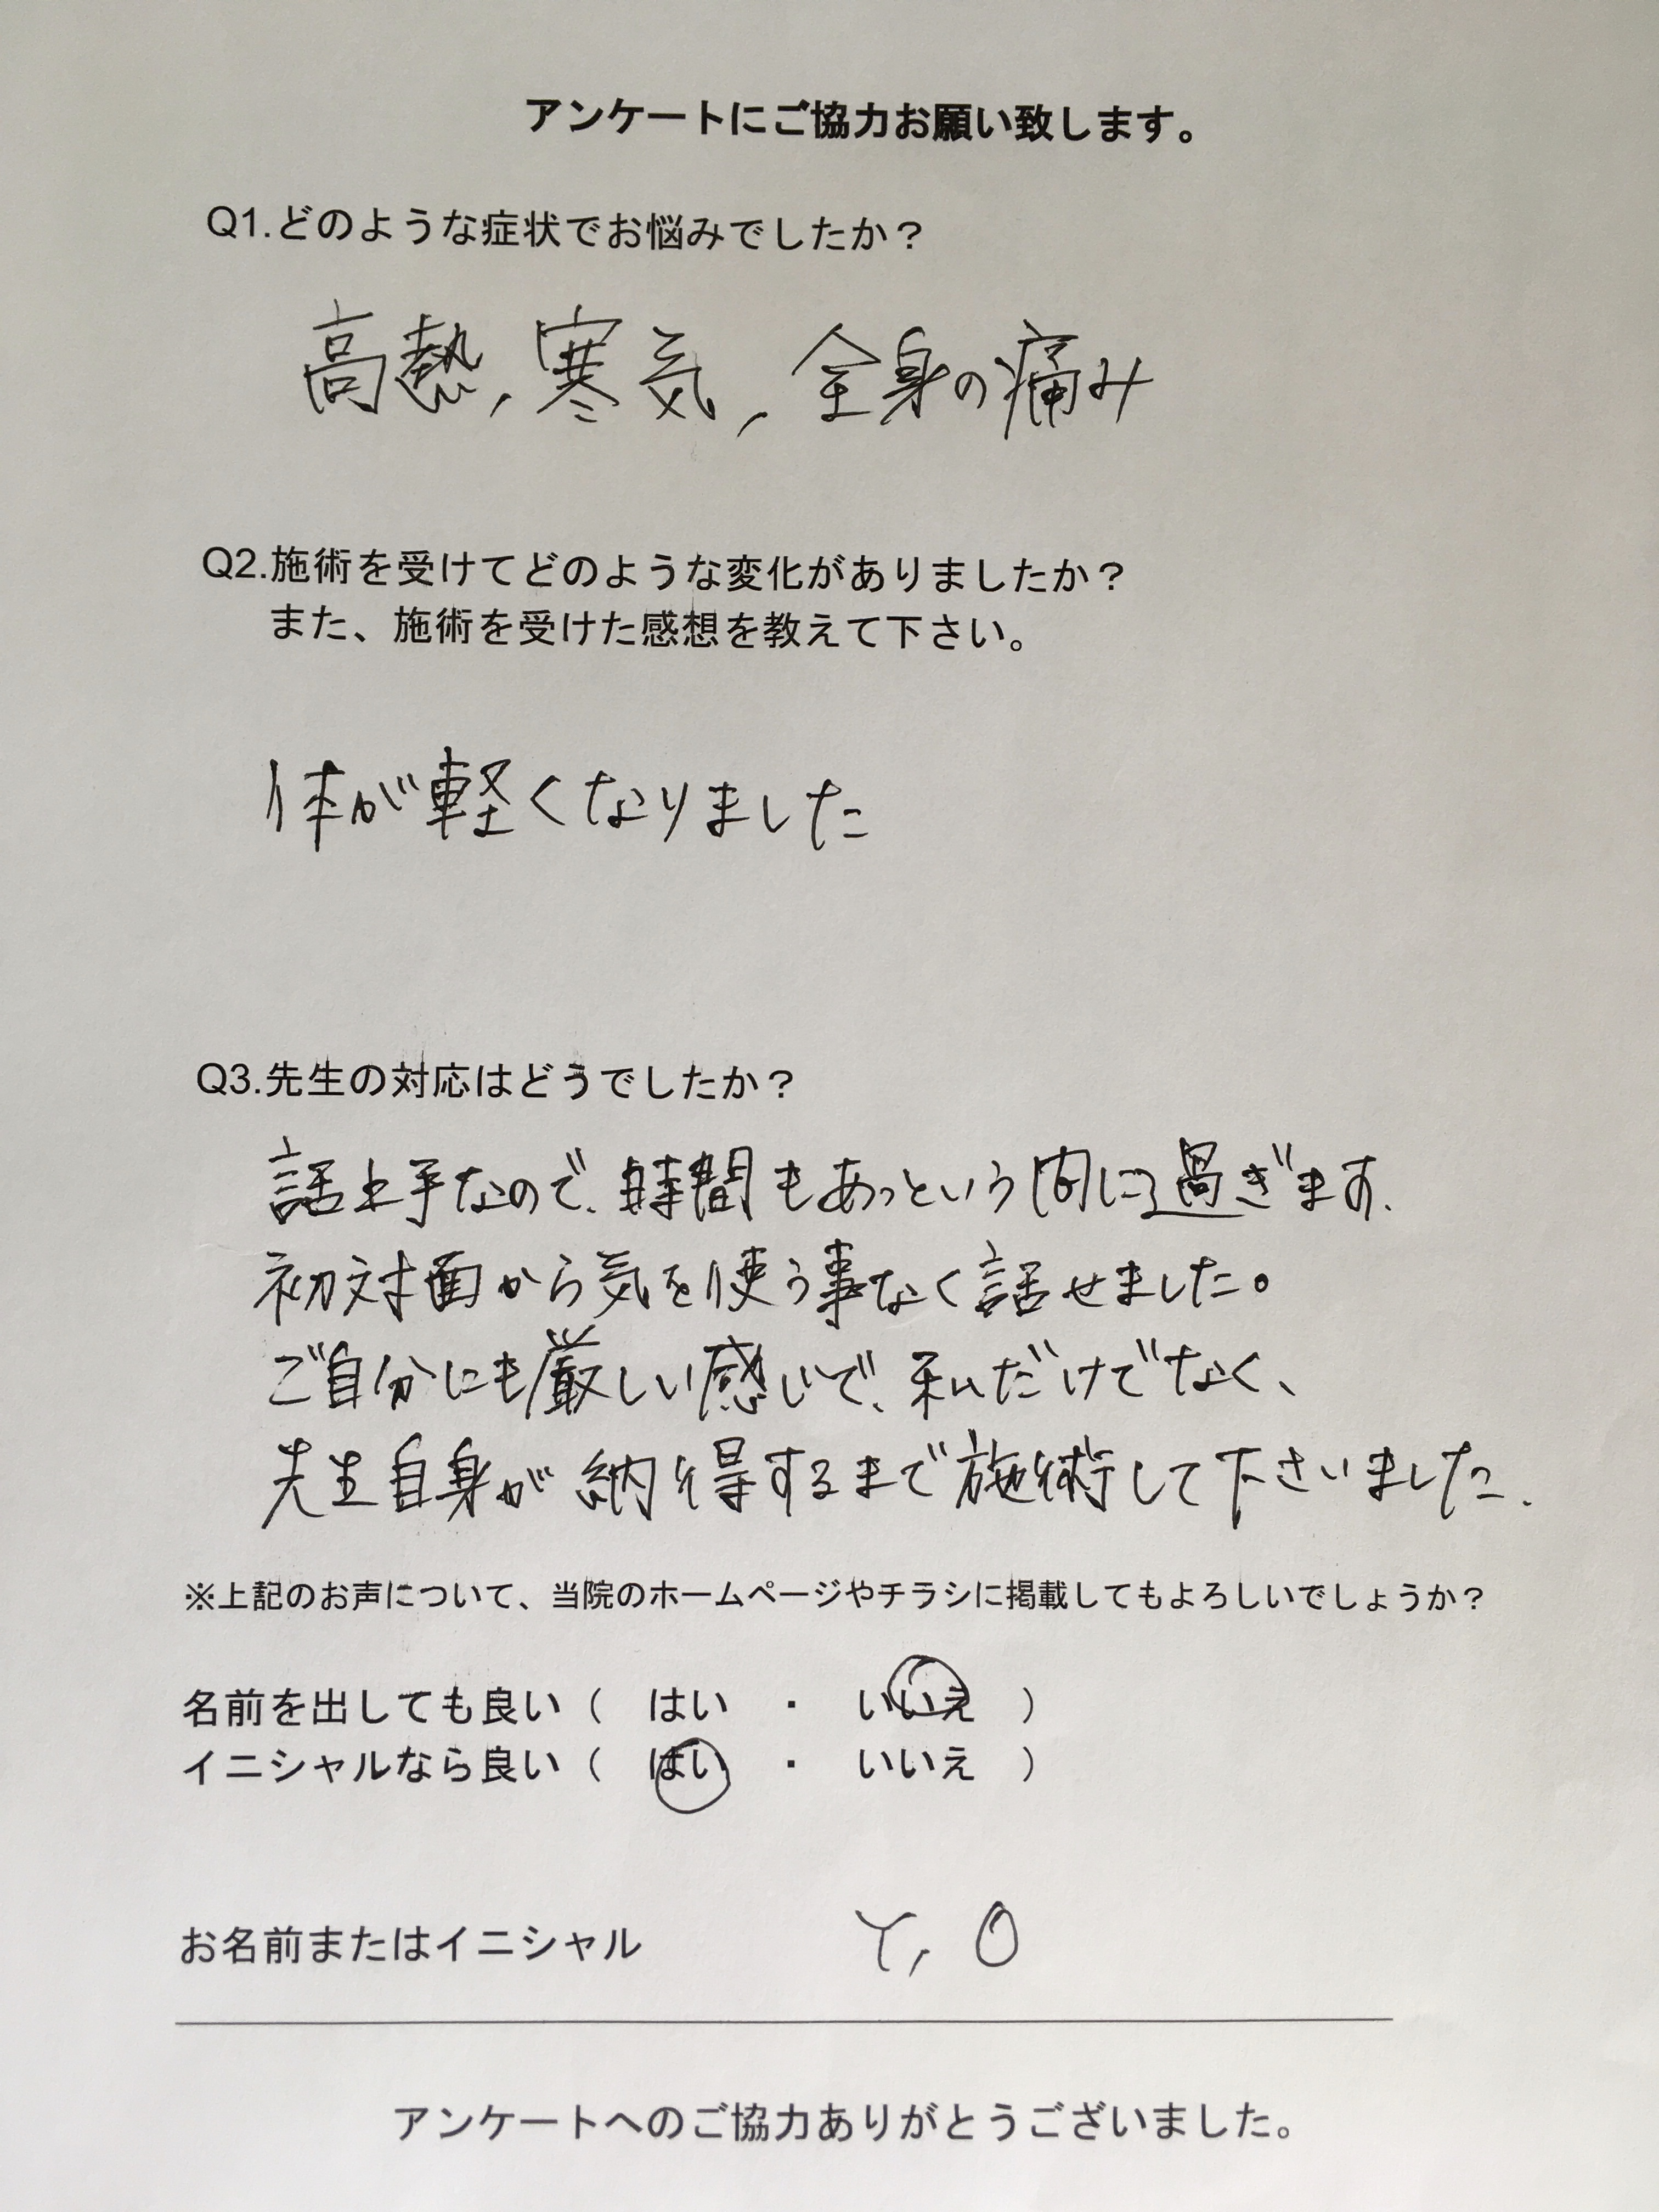 アンケートにご協力お願い致します。
Q1.どのような症状でお悩みでしたか？
高熱，寒気，全身の痛み
Q2.施術を受けてどのような変化がありましたか？
また、施術を受けた感想を教えて下さい。
体が軽くなりました
Q3.先生の対応はどうでしたか？
話上手なので、時間もあっという間に過ぎます.
初対面から気を使う事なく話せました。
ご自分にも厳しい感じで、私だけでなく、
先生自身が納得するまで施術して下さいました.
※上記のお声について、当院のホームページやチラシに掲載してもよろしいでしょうか？
名前を出しても良い（　はい　・　いいえ　）
イニシャルなら良い（　はい　・　いいえ　）
お名前またはイニシャル　Y, O
アンケートへのご協力ありがとうございました。